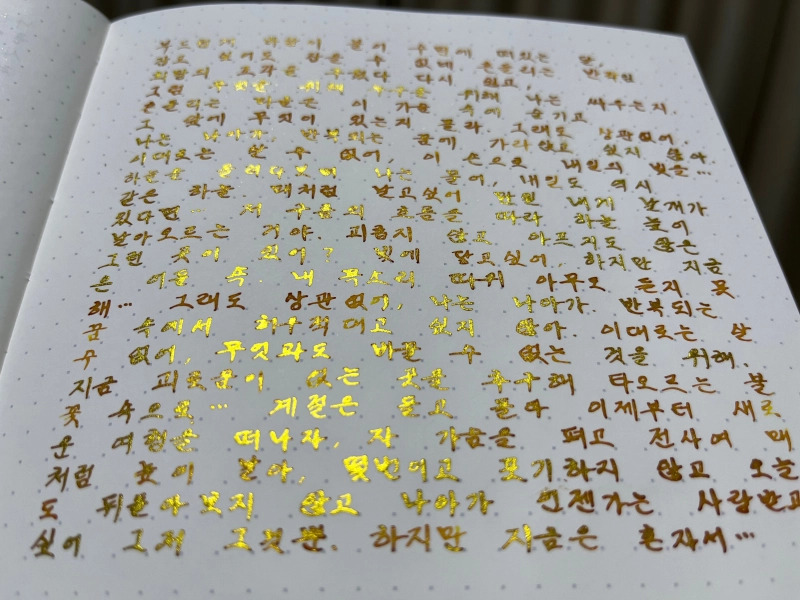 부드럽게 바람이 불어 수면에 떠있는 달,
잡고 싶어도 잡을 수 없네 흔들리는 반짝임
희망의 조각을 주웠다 다시 잃고,
그럼 무엇을 위해 우주를 위해 나는 싸우는지.
흔들리는 마음은 이 가슴 속에 숨기고
그 앞에 무엇이 있는지 몰라. 그래도 상관없어,
나는 나아가. 반복되는 꿈에 가라앉고 싶지 않아.
이대로는 알 수 없어, 이 손으로 내일의 빛을…
하늘을 올려다보며 나는 물어, 내일도 역시
같은 하늘 때처럼 날고싶어 만일 내게 날개가
있다면… 저 구름의 흐름을 따라 하늘 높이
날아오르는 거야. 괴롭지 않고 아프지도 않은
그런 곳이 있어? 빛에 닿고싶어, 하지만 지금
은 어둠 속. 내 목소리 따위 아무도 듣지 못
해… 그래도 상관없어, 나는 나아가. 반복되는
꿈 속에서 허우적대고 싶지 않아. 이대로는 살
수 없어, 무엇과도 바꿀 수 없는 것을 위해.
지금 괴로움이 없는 곳을 추구해 타오르는 불
꽃 속으로… 계절은 돌고 돌아 이제부터 새로
운 여행을 떠나자, 자 가슴을 펴고 전사여 매
처럼 높이 날아, 몇번이고 포기하지 않고 오늘
도 뒤돌아보지 않고 나아가 언젠가는 사랑받고
싶어 그저 그것뿐. 하지만 지금은 혼자서…